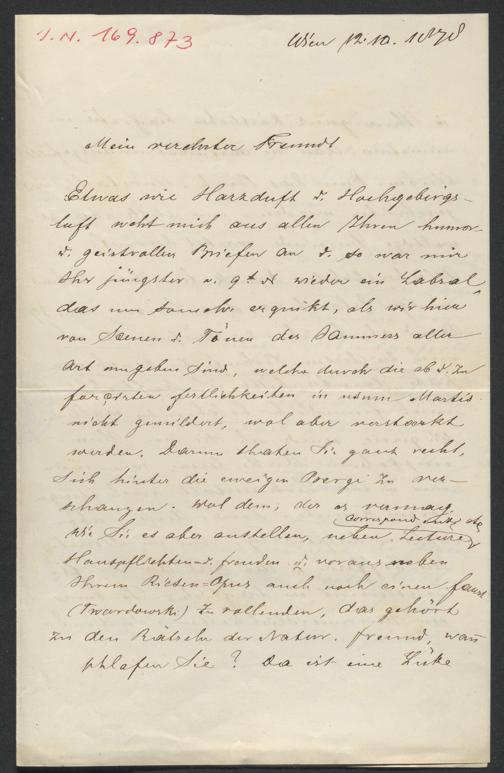 I.N. 169.873
Wien 12.10. 1878
Mein verehrter Freund!
Etwas wie Harzduft u. Hochgebirgs-
luft weht mich aus allen Ihren humor-
u. geistvollen Briefen an u. so war mir
Ihr jüngster v. 9t d M wieder ein Labsal
das um so mehr erquikt, als wir hier
von Scenen u. Tönen des Jammers aller
Art umgeben sind, welche durch die ab u. zu
forçirten festlichkeiten in usum Martis
nicht gemildert, wol aber verstärkt
werden. Darum thaten Sie ganz recht,
Sich hinter die ewigen Berge zu ver-
schanzen. Wol dem, der es vermag
Wie Sie es aber anstellen, neben Lecture,
Correspond
Hauspflichten u. freuden u. voraus neben
Ihrem Riesen=Opus auch noch einen faust
(Twardowski) zu vollenden, das gehört
zu den Rätseln der Natur. Freund, wañ
schlafen Sie? Da ist eine Lüke